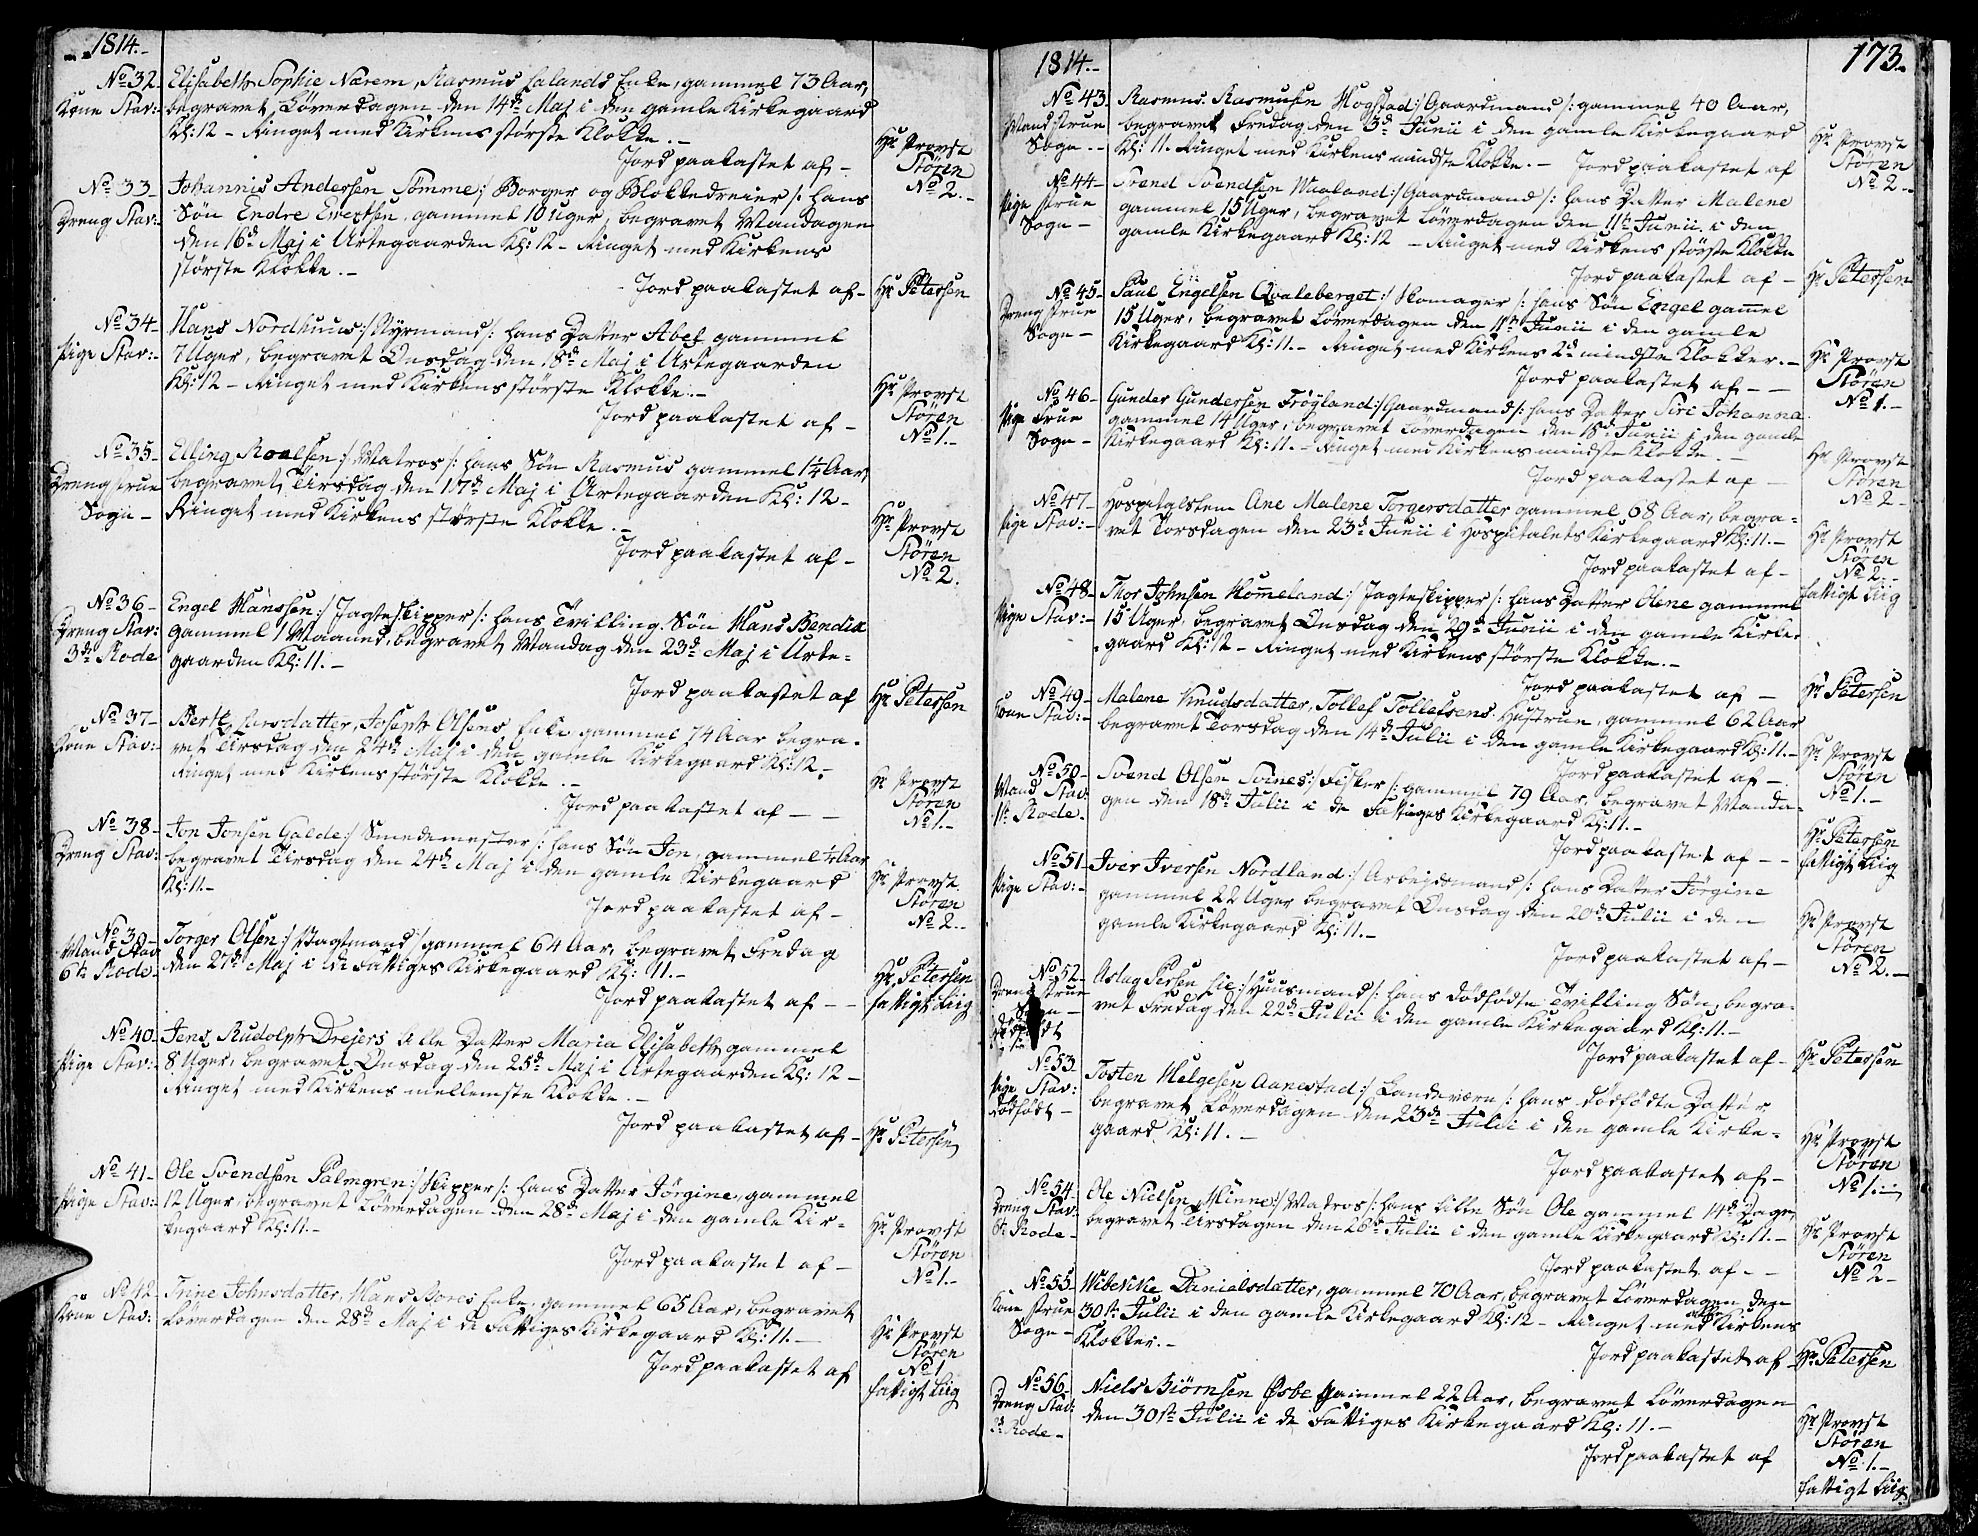 1814.-
No 32 Elisabeth Sophie Nærem, Rasmus Lalands Enke, gammel 73 Aar,
Kone Stav: begravet Løverdagen den 14de Maj i den gamle Kirkegaard
Kl: 12 - Ringet med Kirkens største Klokke.-
Jord paakastet af - Hr Provst Støren No 2.-
No 33 Johannis Andersen Tømme :/ Borger og Blokkedreier /: hans
Dreng Stav: Søn Endre Evertsen, gammel 10 Uger, begravet Mandagen
den 16de Maj i Urtegaarden Kl: 12 - Ringet med Kirkens
største Klokke.-
Jord paakastet af - Hr Petersen
No 34- Hans Nordhuus :/ Styrmand /: hans Datter Abel gammel
Pige Stav:- 7 Uger, begravet Onsdag den 18de Maj i Urtegaarden
Kl: 12 - Ringet med Kirkens største Klokke.-
Jord paakastet af - Hr Provst Støren No 1.-
No 35- Elling Roalsen :/ Matros /: hans Søn Rasmus gammel 1¼ Aar,
Dreng Frue begravet Tirsdag den 17de Maj i Urtegaarden Kl: 12-
Sogn - Ringet med Kirkens største Klokke.-
Jord paakastet af - Hr Provst Støren No 2.
No 36- Engel Hanssen :/ Jagteskipper /: hans Tvilling Søn Hans Bendix
Dreng Stav: gammel 1 Maaned, begravet Mandag den 23de Maj i Urte-
3de Rode gaarden Kl: 11.-
Jord paakastet af Hr Petersen
No 37- Berte Larsdatter, Joseph Olsens Enke gammel 74 Aar begra-
Kone Stav:- vet Tirsdag den 24de Maj i den gamle Kirkegaard Kl: 12.
Ringet med Kirkens største Klokke.-
Jord paakastet af - - Hr Provst Støren No 1.-
No 38- Jon Jonsen Galde :/ Smedemester /: hans Søn Jon, gammel ¼ Aar
Dreng Stav: begravet Tirsdag den 24de Maj i den gamle Kirkegaard
Kl: 11.-
Jord paakastet af - Hr Provst Støren No 2.-
No 39- Torger Olsen :/ Vagtmand /: gammel 64 Aar, begravet Fredag
Mand Stav den 27de Maj i de Fattiges Kirkegaard Kl: 11.-
6te Rode-
Jord paakastet af - - Hr Petersen fattigt Liig
No 40 Jens Rudolph Drejers lille Datter Maria Elisabeth gammel
Pige Stav:- 8 Uger, begravet Onsdag den 25de Maj i Urtegaarden Kl: 12-
Ringet med Kirkens mellemste Klokke.-
Jord paakastet af - Hr Petersen
No 41- Ole Svendsen Palmgren :/ Skipper /: hans Datter Jørgine, gammel
Pige Stav: 12 Uger, begravet Løverdagen den 28de Maj i den gamle Kir-
kegaard Kl: 11.-
Jord paakastet af - Hr Provst Støren No 1.-
No 42- Trine Johnsdatter, Hans Bores Enke, gammel 65 Aar, begravet
Kone Stav: Løverdagen den 28de Maj i de Fattiges Kirkegaard Kl: 11.-
Jord paakastet af Hr Provst Støren No 1 fattigt Liig
1814.- 173.
No 43 Rasmus Rasmusen Hogstad :/ Gaardmand /: gammel 40 Aar,
Mand Frue begravet Fredag den 3de Junii i den gamle Kirkegaard
Sogn - Kl: 11. Ringet med Kirkens mindste Klokke.- Jord paakastet af Hr Provst Støren No 2-
No 44- Svend Svendsen Waaland :/ Gaardmand /: hans Datter Malene
Pige Frue gammel 15 Uger, begravet Løverdagen den 11te Junii i den
Sogn - gamle Kirkegaard Kl: 12 - Ringet med Kirkens største Klokke
Jord paakastet af - Hr Petersen
No 45- Paul Engelsen Qvaleberget :/ Skomager /: hans Søn Engel gammel
Dreng Frue 15 Uger, begravet Løverdagen den 11te Junii i den gamle
Sogn- Kirkegaard Kl: 11.- Ringet med Kirkens 2de mindste Klokker.-
Jord paakastet af - - Hr Provst Støren No 1.-
No 46- Gunder Gundersen Frøyland :/ Gaardmand /: hans Datter Siri Johanna
Pige Frue gammel 14 Uger, begravet Løverdagen den 18de Junii i den gamle
Sogn - Kirkegaard Kl: 11.- Ringet med Kirkens mindste Klokke.-
Jord paakastet af - Hr Provst Støren No 2-
No 47- Hospitalslem Ane Malene Torgersdatter gammel 68 Aar, begra-
Pige Stav:- vet Torsdagen den 23de Junii i Hospitalets Kirkegaard Kl: 11.-
Jord paakastet af - Hr Provst Støren No 2- fattigt Liig
No 48- Thor Johnsen Hommeland :/ Jagteskipper /: hans Datter Olene gammel
Pige Stav:- 15 Uger, begravet Onsdag den 29de Junii i den gamle Kirke-
gaard Kl: 12 - Ringet med Kirkens største Klokke.-
Jord paakastet af - Hr Petersen
No 49- Malene Knudsdatter, Tollef Tollefsens Hustrue, gammel 62 Aar
Kone Stav:- begravet Torsdag den 14de Julii i den gamle Kirkegaard Kl: 11.-
Jord paakastet af - Hr Provst Støren No 1.-
No 50- Svend Olsen Svines :/ Fisker /: gammel 79 Aar, begravet Manda-
Mand Stav: gen den 18de Julii i de Fattiges Kirkegaard Kl: 11.-
1te Rode-
Jord paakastet af - - Hr Petersen fattigt Liig
No 51 Iver Iversen Nordland :/ Arbejdsmand /: hans Datter Jørgine
Pige Stav:- gammel 22 Uger begravet Onsdag den 20de Julii i den
gamle Kirkegaard Kl: 11.-
Jord paakastet af - Hr Provst Støren No 2.-
No 52- Aslag Persen Lie :/ Huusmand /: hans dødfødte Tvilling Søn, begra-
Dreng Frue vet Fredag den 22de Julii i den gamle Kirkegaard Kl: 11.-
Jord paakastet af - Hr Petersen
No 53 Tosten Helgesen Aanestad :/ Landeværn /: hans dødfødte Datter,
Pige Stav: begravet Løverdagen den 23de Julii i den gamle Kirke-
dødfødt - gaard Kl: 11.-
Jord paakastet af - Hr Provst Støren No 1.-
No 54- Ole Nielsen Hinne :/ Matros /: hans lille Søn Ole gammel 14de Dage,
Dreng Stav: begravet Tirsdagen den 26de Julii i den gamle Kirkegaard Kl: 11.-
Rode-
Jord paakastet af - - Hr Provst Støren No 2-
No 55- Wibekke Danielsdatter, gammel 70 Aar, begravet Løverdagen den
Kone Frue 30te Julii i den gamle Kirkegaard Kl: 12 - Ringet med alle Kirkens
Sogn- Klokker.-
Jord paakastet af Hr Petersen
No 56- Niels Biørnsen Øsbe gammel 22 Aar, begravet Løverdagen
Dreng Stav: den 30te Julii i de Fattiges Kirkegaard Kl: 11.-
Rode-
Jord paakastet af Hr Provst Støren No 1.- fattigt Liig